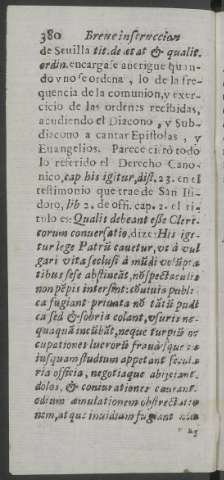 380 Breue instruccion
de Seuilla tit. de ætat & qualit.
ordin. encarga se auerigue quan-
do vno se ordena, lo de la fre-
quencia de la comunion, y exer-
cicio de las ordenes recibidas,
acudiendo el Diacono, y Sub-
diacono a cantar Epistolas, y
Euangelios. Parece cifrò todo
lo referido el Derecho Cano-
nico, cap his igitur, dist. 23. en el
testimonio que trae de San Isi-
doro, lib 2. de offi. cap. 2. el ti-
tulo es: Qualis debeant esse Cleri-
corum conuersatio, dize: His igi-
tur lege Patrũ cauetur, vt à vul-
gari vita seclusi à mũdi volũpta-
tibus sese abstineãt, nõ spectaculis
non põpis intersint: cõuiuia publi-
ca fugiant priuata nõ tãtũ pudi
ca sed & sobria colant, vsuris ne-
quaquã incũbãt, neque turpiũ oc
cupationes lucrorũ fraudisque cu
iusquam studium appetant secula-
ria officia, negotiaque abijciant.
dolos, & coniurationes caueant.
odium æmulationem obtrectatio
nem, atque inuidiam fugiant